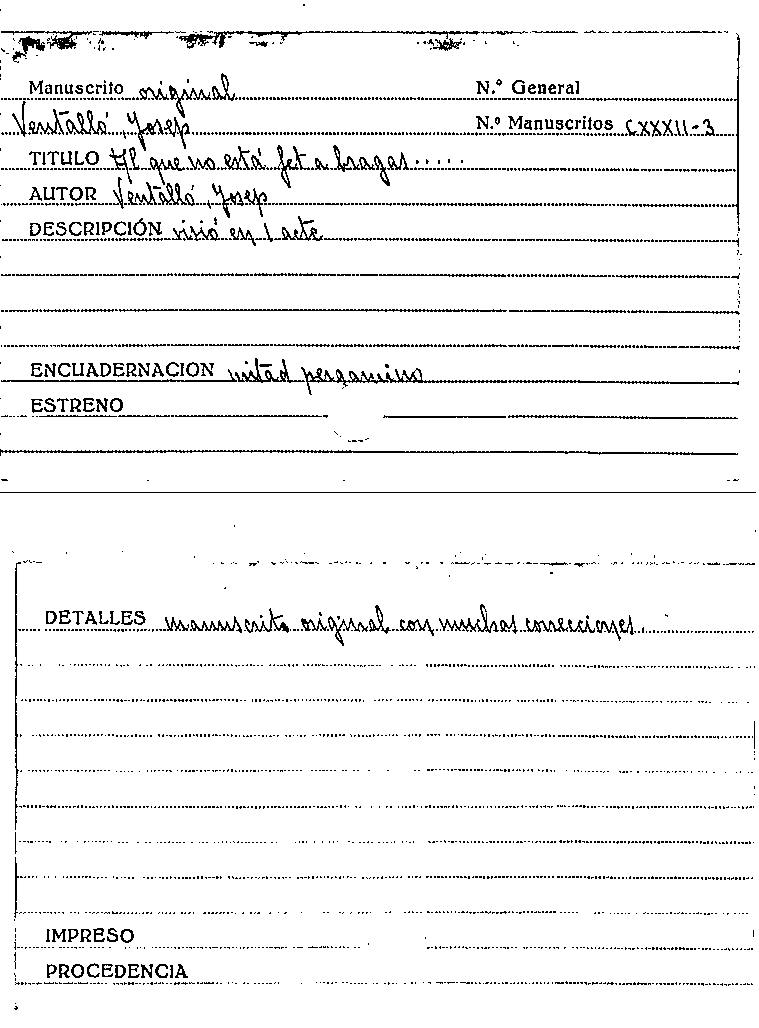 Manuscrito original N.º General
Ventalló, Josep N.º Manuscritos CXXXII-3
TITULO El que no está fet a bragas.....
AUTOR Ventalló, Josep
DESCRIPCIÓN visió en 1 acte
ENCUADERNACION mitad pergamino
ESTRENO
DETALLES manuscrito original con muchas correcciones.
IMPRESO
PROCEDENCIA